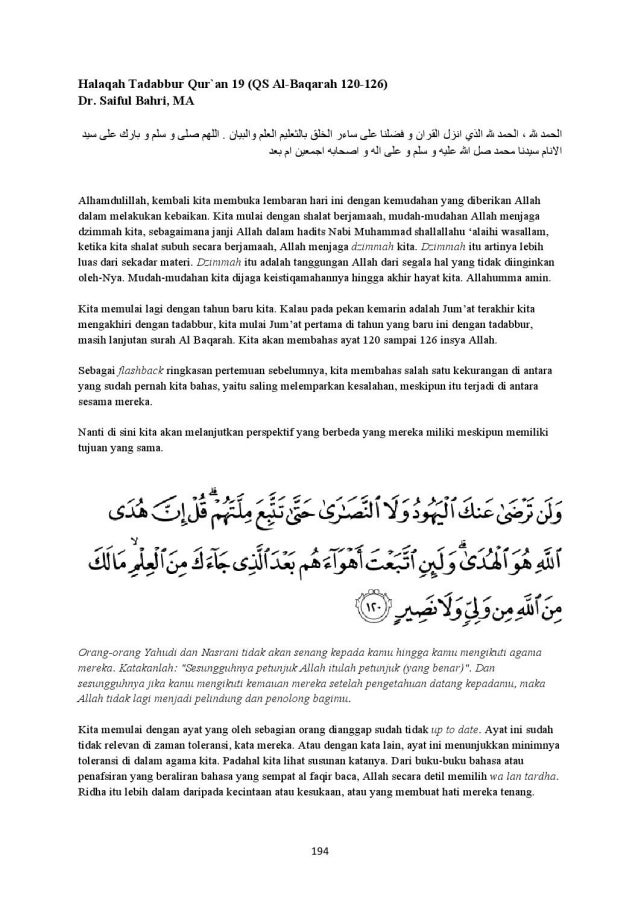 Halaqah Tadabbur Qur`an 19 (QS Al-Baqarah 120-126)
Dr. Saiful Bahri, MA
الحمد لله ، الحمد لله الذي انزل القران و فضلنا على ساءر الخلق بالتعليم العلم والبيان . اللهم صلى و سلم و بارك على سيد
الانام سيدنا محمد صل الله عليه و سلم و على اله و اصحابه اجمعين ام بعد
Alhamdulillah, kembali kita membuka lembaran hari ini dengan kemudahan yang diberikan Allah
dalam melakukan kebaikan. Kita mulai dengan shalat berjamaah, mudah-mudahan Allah menjaga
dzimmah kita, sebagaimana janji Allah dalam hadits Nabi Muhammad shallallahu ‘alaihi wasallam,
ketika kita shalat subuh secara berjamaah, Allah menjaga dzimmah kita. Dzimmah itu artinya lebih
luas dari sekadar materi. Dzimmah itu adalah tanggungan Allah dari segala hal yang tidak diinginkan
oleh-Nya. Mudah-mudahan kita dijaga keistiqamahannya hingga akhir hayat kita. Allahumma amin.
Kita memulai lagi dengan tahun baru kita. Kalau pada pekan kemarin adalah Jum’at terakhir kita
mengakhiri dengan tadabbur, kita mulai Jum’at pertama di tahun yang baru ini dengan tadabbur,
masih lanjutan surah Al Baqarah. Kita akan membahas ayat 120 sampai 126 insya Allah.
Sebagai flashback ringkasan pertemuan sebelumnya, kita membahas salah satu kekurangan di antara
yang sudah pernah kita bahas, yaitu saling melemparkan kesalahan, meskipun itu terjadi di antara
sesama mereka.
Nanti di sini kita akan melanjutkan perspektif yang berbeda yang mereka miliki meskipun memiliki
tujuan yang sama.
وَلَن تَرْضَىٰ عَنكَ ٱلْيَهُودُ وَلَا ٱلنَّصَـٰرَىٰ حَتَّىٰ تَتَّبِعَ مِلَّتَهُمْ ۗ قُلْ إِنَّ هُدَى
ٱللَّهِ هُوَ ٱلْهُدَىٰ ۗ وَلَئِنِ ٱتَّبَعْتَ أَهْوَآءَهُم بَعْدَ ٱلَّذِى جَآءَكَ مِنَ ٱلْعِلْمِ ۙ مَا لَكَ
مِنَ ٱللَّهِ مِن وَلِىٍّ وَلَا نَصِيرٍ ١٢٠
Orang-orang Yahudi dan Nasrani tidak akan senang kepada kamu hingga kamu mengikuti agama
mereka. Katakanlah: "Sesungguhnya petunjuk Allah itulah petunjuk (yang benar)". Dan
sesungguhnya jika kamu mengikuti kemauan mereka setelah pengetahuan datang kepadamu, maka
Allah tidak lagi menjadi pelindung dan penolong bagimu.
Kita memulai dengan ayat yang oleh sebagian orang dianggap sudah tidak up to date. Ayat ini sudah
tidak relevan di zaman toleransi, kata mereka. Atau dengan kata lain, ayat ini menunjukkan minimnya
toleransi di dalam agama kita. Padahal kita lihat susunan katanya. Dari buku-buku bahasa atau
penafsiran yang beraliran bahasa yang sempat al faqir baca, Allah secara detil memilih wa lan tardha.
Ridha itu lebih dalam daripada kecintaan atau kesukaan, atau yang membuat hati mereka tenang.
194